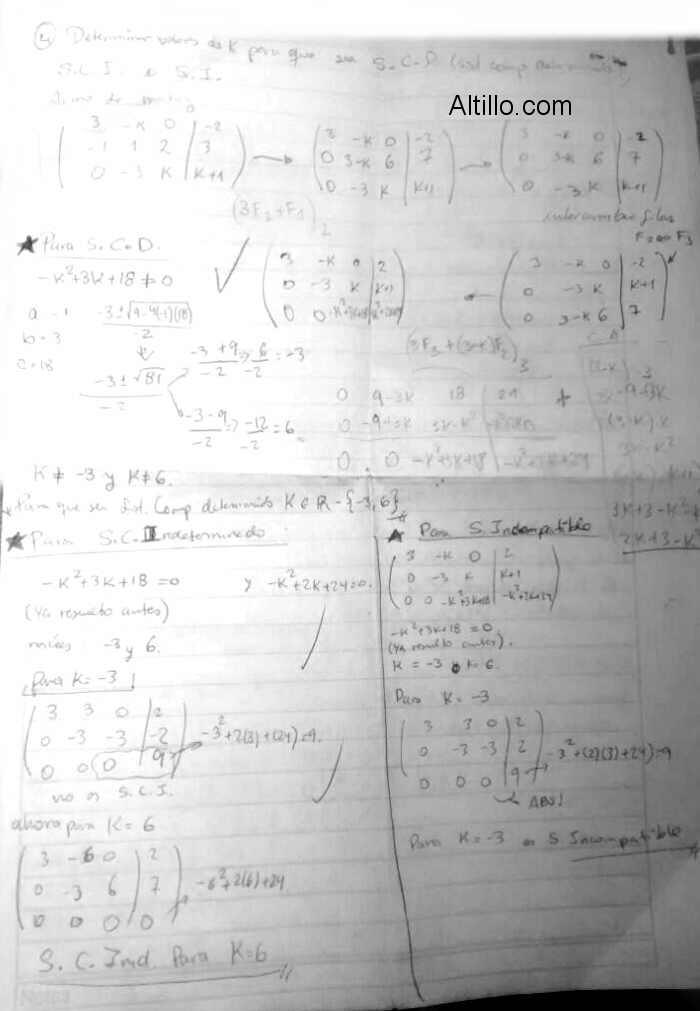 4) Determinar valores de K para que sea S.C.D (sist comp determinado)
S.C.I. o S.I.
Altillo.com
( 3 -K 0 | -2 ) → ( 3 -K 0 | -2 ) → ( 3 -K 0 | -2 )
( -1 1 2 | 3 ) ( 0 3-K 6 | 7 ) ( 0 3-K 6 | 7 )
( 0 -3 K | K+1 ) ( 0 -3 K | K+1 ) ( 0 -3 K | K+1 )
(3F2+F1) 2
intercambiar filas
F2 ↔ F3
★ Para S.C.D.
-K²+3K+18 ≠ 0
( 3 -K 0 | 2 ) ← ( 3 -K 0 | -2 )
( 0 -3 K | K+1 ) ( 0 -3 K | K+1 )
( 0 0 -K²+3K+18 | -K²+2K+24 ) ( 0 3-K 6 | 7 )
(3F3+(3-K)F2) 3
a -1
b = 3
c = 18
-3±√(9-4(-1)(18))
-2
-3±√81
-2
-3+9 ⇒ 6 = -3
-2 -2
-3-9 ⇒ -12 = 6
-2 -2
0 9-3K 18 | 21 +
0 -9+3K 3K-K²
0 0 -K²+3K+18 | -K²+2K+24
3K+3-K²
2K+3-K²
K ≠ -3 y K ≠ 6.
Para que sea Sist. Comp determinado K ∈ R - {-3,6}
★ Para S.C. Indeterminado
-K²+3K+18 = 0 y -K²+2K+24 = 0.
(Ya resuelto antes)
raíces: -3 y 6.
Para K = -3
( 3 3 0 | 2 )
( 0 -3 -3 | -2 )
( 0 0 0 | 9 ) → -3²+2(3)+(24)=9.
no es S.C.I.
ahora para K = 6
( 3 -6 0 | 2 )
( 0 -3 6 | 7 )
( 0 0 0 | 0 ) → -6²+2(6)+24
S.C. Ind. Para K=6
★ Para S. Incompatible
( 3 -K 0 | 2 )
( 0 -3 K | K+1 )
( 0 0 -K²+3K+18 | -K²+2K+24 )
-K²+3K+18 = 0
(Ya resuelto antes).
K = -3 o K = 6.
Para K = -3
( 3 3 0 | 2 )
( 0 -3 -3 | 2 )
( 0 0 0 | 9 ) → -3²+(2)(3)+24)=9
ABS!
Para K = -3 es S Incompatible